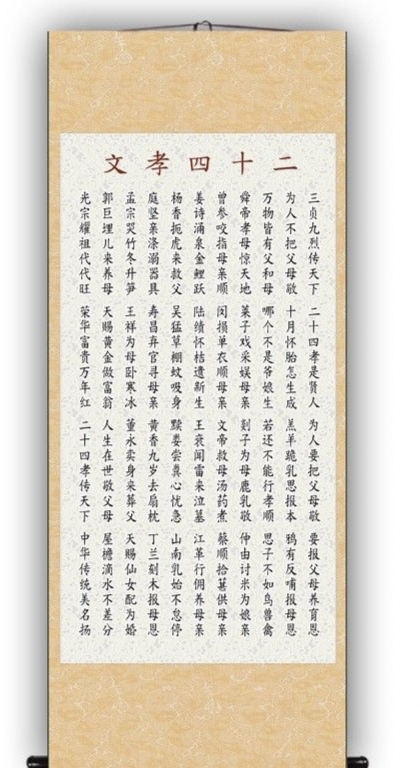 二十四孝文
三贞九烈传天下 二十四孝是賢人 为人要把父母敬 要报父母养育恩
为人不把父母敬 十月怀胎怎生成 羔羊跪乳思报本 鸦有反哺报母恩
万物皆有父和母 哪个不是爷娘生 若还不能行孝顺 思子不如鸟兽禽
舜帝孝母惊天地 莱子戏采娱母亲 剡子为母鹿乳敬 仲由讨米为娘亲
曾参咬指母亲顺 闵损单衣顺母亲 文帝救母汤药煮 蔡顺拾葚供母亲
姜诗涌泉金鲤跃 陆绩怀桔遗新生 王裒闻雷来泣墓 江革行佣养母亲
杨香扼虎来救父 吴猛草棚蚊吸身 黥娄尝粪心忧急 山南乳始不怠停
庭坚亲涤溺器具 寿昌弃官寻母亲 黄香九岁去扇枕 丁兰刻木报母恩
孟宗哭竹冬升笋 王祥为母卧寒冰 董永卖身来葬父 天赐仙女配为婚
郭巨埋儿来养母 天赐黄金做富翁 人生在世敬父母 屋檐滴水不差分
光宗耀祖代代旺 荣华富贵万年红 二十四孝传天下 中华传统美名扬